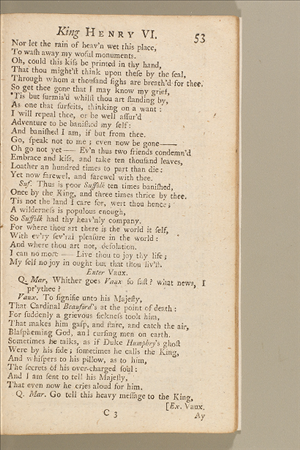 King HENRY VI. 53
Nor let the rain of heav'n wet this place,
To wash away my woful monuments.
Oh, could this kiss be printed in thy hand,
That thou might'st think upon these by the seal,
Through whom a thousand sighs are breath'd for thee.
So get thee gone that I may know my grief,
'Tis but surmis'd whilst thou art standing by,
As one that surfeits, thinking on a want:
I will repeal thee, or be well assur'd
Adventure to be banished my self:
And banished I am, if but from thee.
Go, speak not to me; even now be gone——
Oh go not yet—— Ev'n thus two friends condemn'd
Embrace and kiss, and take ten thousand leaves,
Loather an hundred times to part than die:
Yet now farewel, and farewel with thee.
Suf. Thus is poor Suffolk ten times banished,
Once by the King, and three times thrice by thee.
'Tis not the land I care for, wert thou hence;
A wilderness is populous enough,
So Suffolk had thy heav'nly company.
For where thou art there is the world it self,
With ev'ry sev'ral pleasure in the world:
And where thou art not, desolation.
I can no more—— Live thou to joy thy life;
My self no joy in ought but that thou liv'st.
Enter Vaux.
Q. Mar. Whither goes Vaux so fast? what news, I
pr'ythee?
Vaux. To signifie unto his Majesty,
That Cardinal Beauford's at the point of death:
For suddenly a grievous sickness took him,
That makes him gasp, and stare, and catch the air,
Blaspheming God, and cursing men on earth.
Sometimes he talks, as if Duke Humphry's ghost
Were by his side; sometimes he calls the King,
And whispers to his pillow, as to him,
The secrets of his over-charged soul:
And I am sent to tell his Majesty,
That even now he cries aloud for him.
Q. Mar. Go tell this heavy message to the King,
[Ex. Vaux.
C 3 Ay